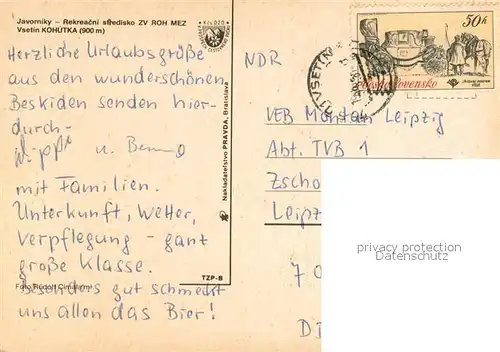 Javorníky – Rekreační středisko ZV ROH MEZ
Vsetín KOHÚTKA (900 m)
Herzliche Urlaubsgrüße
aus den wunderschönen
Beskiden senden hier-
durch-
u.
mit Familien.
Unterkunft, Wetter,
Verpflegung – ganz
große Klasse.
Besonders gut schmeckt
uns allen das Bier!
Foto Rudolf
TZP-B
Nakladatelstvo PRAVDA, Bratislava
50h
Československo
VSETÍN
NDR
VEB Montan Leipzig
Abt. TVB 1
Zscho
Leipz
7 0
D
privacy protection
DATENSCHUTZ